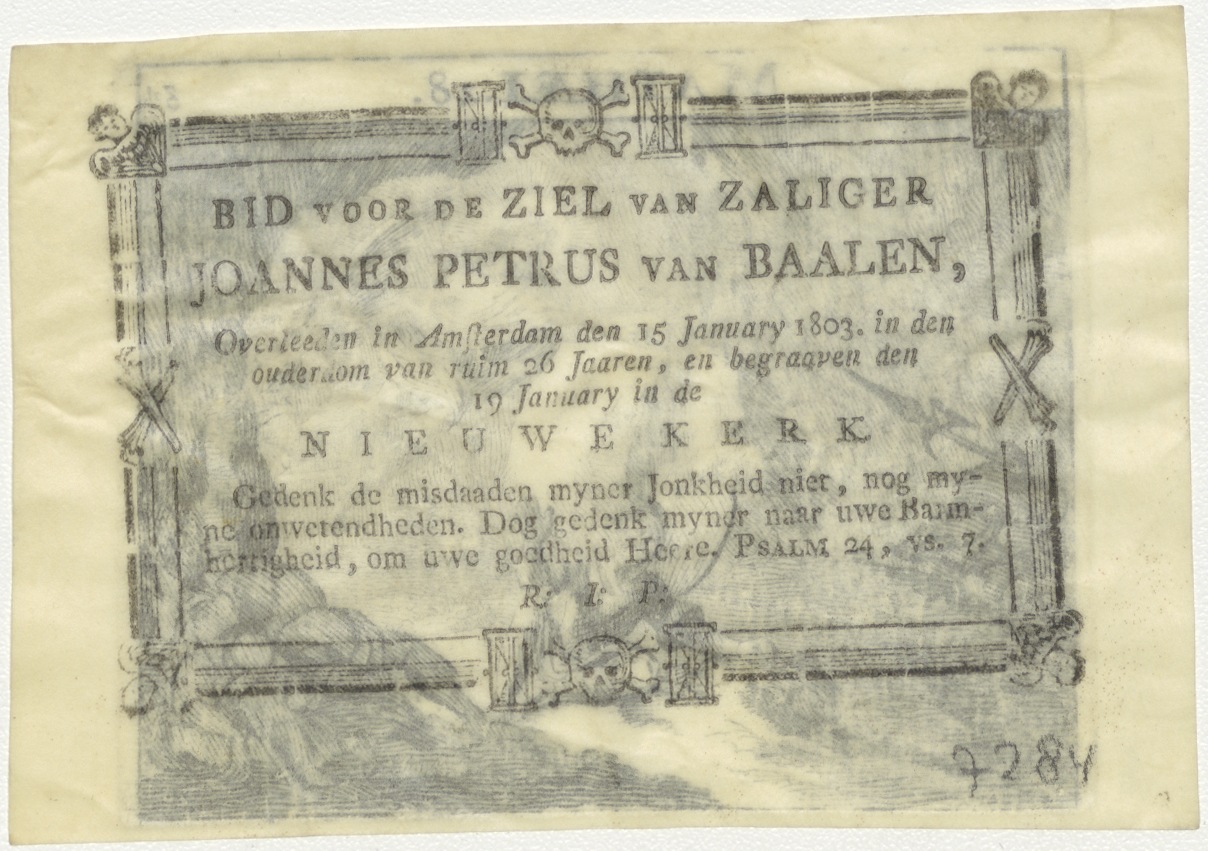 BID VOOR DE ZIEL VAN ZALIGER
JOANNES PETRUS VAN BAALEN,
Overleeden in Amsterdam den 15 January 1803. in den
ouderdom van ruim 26 Jaaren, en begraaven den
19 January in de
NIEUWE KERK
Gedenk de misdaaden myner Jonkheid niet, nog my-
ne onwetendheden. Dog gedenk myner naar uwe Barm-
hertigheid, om uwe goedheid Heere. PSALM 24, vs. 7.
R: I: P:
7284